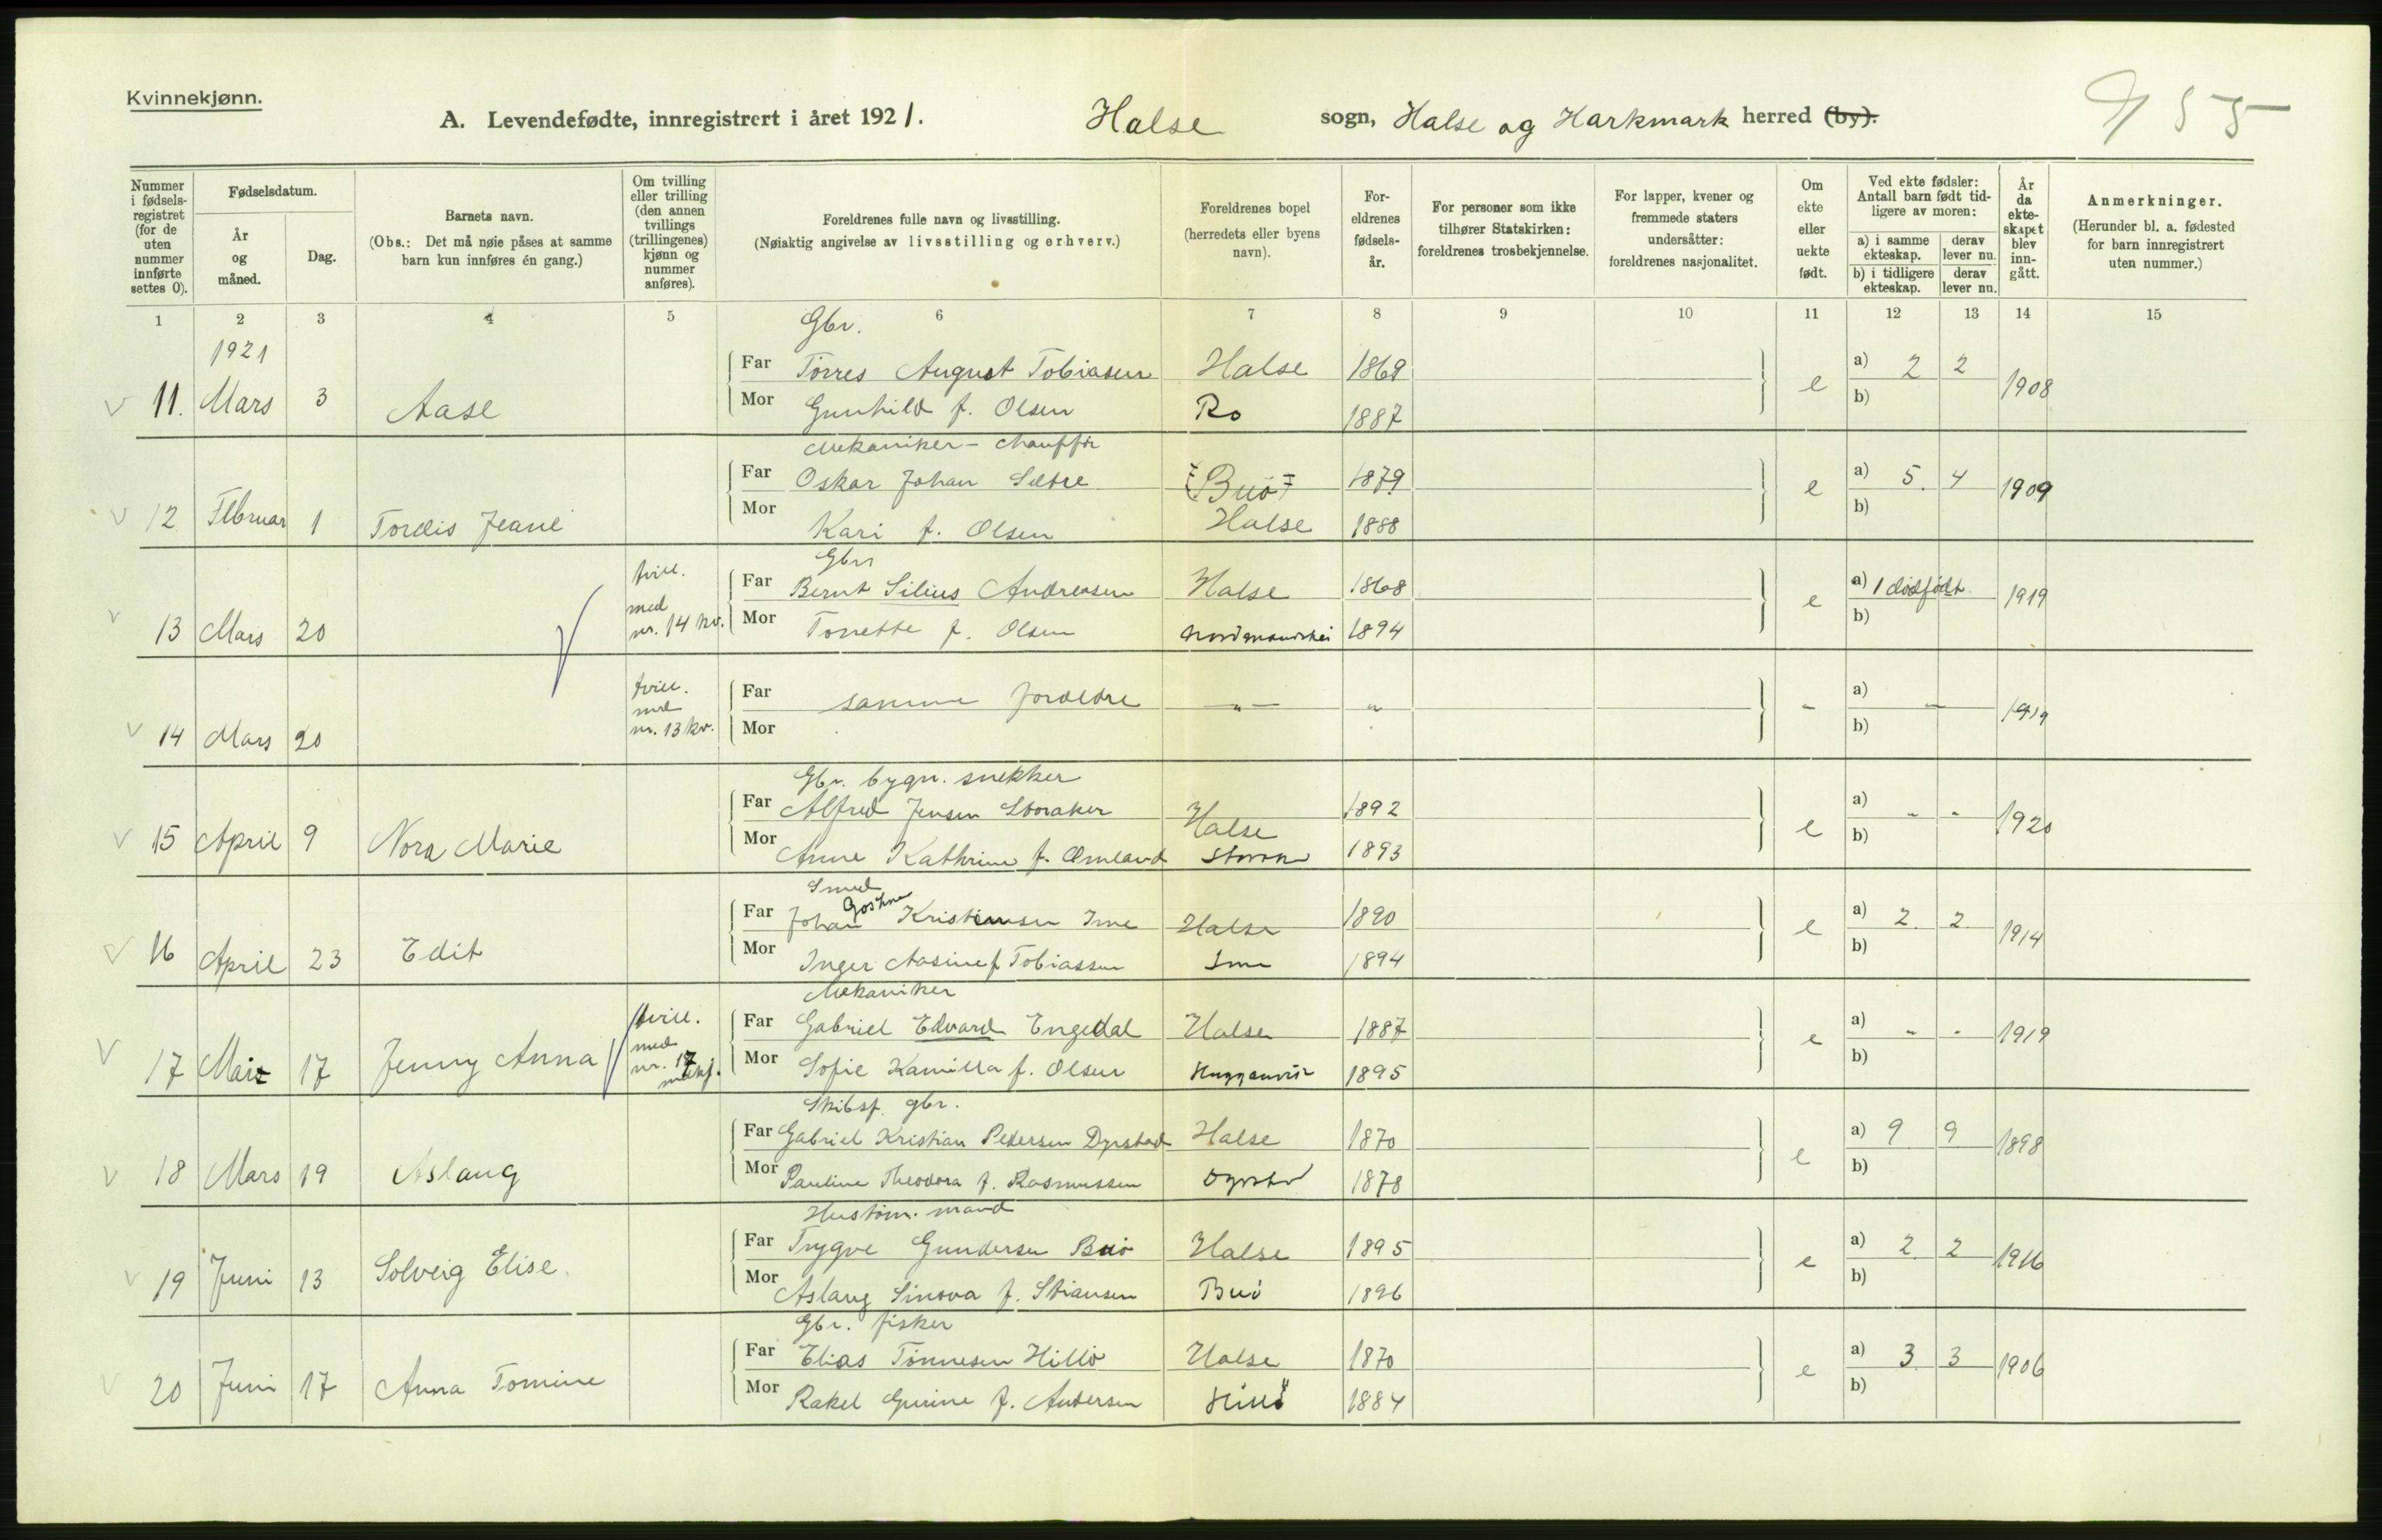 Kvinnekjønn.
A. Levendefødte, innregistrert i året 1921. Halse sogn, Halse og Harkmark herred (by).
55
Nummer i fødsels-registret (for de uten nummer innførte settes 0).
Fødselsdatum.
År og måned.
Dag.
Barnets navn.
(Obs.: Det må nøie påses at samme barn kun innføres én gang.)
Om tvilling eller trilling (den annen tvillings (trillingenes) kjønn og nummer anføres).
Foreldrenes fulle navn og livsstilling.
(Nøiaktig angivelse av livsstilling og erhverv.)
Foreldrenes bopel (herredets eller byens navn).
For-eldrenes fødsels-år.
For personer som ikke tilhører Statskirken: foreldrenes trosbekjennelse.
For lapper, kvener og fremmede staters undersåtter: foreldrenes nasjonalitet.
Om ekte eller uekte født.
Ved ekte fødsler: Antall barn født tid-ligere av moren:
a) i samme ekteskap. derav lever nu.
b) i tidligere ekteskap. derav lever nu.
År da ekte-skapet blev inn-gått.
Anmerkninger.
(Herunder bl. a. fødested for barn innregistrert uten nummer.)
1 2 3 4 5 6 7 8 9 10 11 12 13 14 15
1921
Gbr.
Far Tørres August Tobiasen Halse 1869 a) 2 2
v 11. Mars 3 Aase e 1908
Mor Gunhild f. Olsen Ro 1887 b)
Mekaniker - chauffør
Far Oskar Johan Sædre Buø 1879 a) 5. 4
v 12 Februar 1 Tordis Jeane e 1909
Mor Kari f. Olsen Halse 1888 b)
Gbr
Far Bernt Silius Andreasen Halse 1868 a) 1 dødfødt
v 13 Mars 20 tvill. med nr. 14 kv. e 1919
Mor Tonette f. Olsen 1894 b)
Far samme foreldre - " - " a) "
v 14 Mars 20 tvill. med nr. 13 kv. " 1919
Mor b)
Gbr. bygn. snekker
Far Alfred Jensen Storaker 1892 a) " "
v 15 April 9 Nora Marie Halse e 1920
Mor Anne Kathrine f. Omland 1893 b)
Smed
Far Johan Goskine Kristensen Ime Halse 1890 a) 2. 2.
v 16 April 23 Edit e 1914
Mor Inger Aasine f Tobiassen Ime 1894 b)
Mekaniker
Far Gabriel Edvard Engedal Halse 1887 a) " "
v 17 Mai 17 Jenny Anna tvill. med nr. 17 e 1919
Mor Sofie Kamilla f. Olsen 1895 b)
Skibsf. gbr.
Far Gabriel Kristian Pedersen Dyrstad Halse 1870 a) 9 9
v 18 Mars 19 Aslaug e 1898
Mor Pauline Theodora f. Rasmussen Dyrstad 1878 b)
Hustøm. mand
Far Trygve Gundersen Buø Halse 1895 a) 2. 2
v 19 Juni 13 Solveig Elise. e 1916
Mor Aslaug Sinova f. Stiansen Buø 1896 b)
Gbr. fisker
Far Elias Tønnesen Hillø Halse 1870 a) 3 3
v 20 Juni 17 Anna Tomine e 1906
Mor Rakel Gurine f. Andersen Hillø 1884 b)